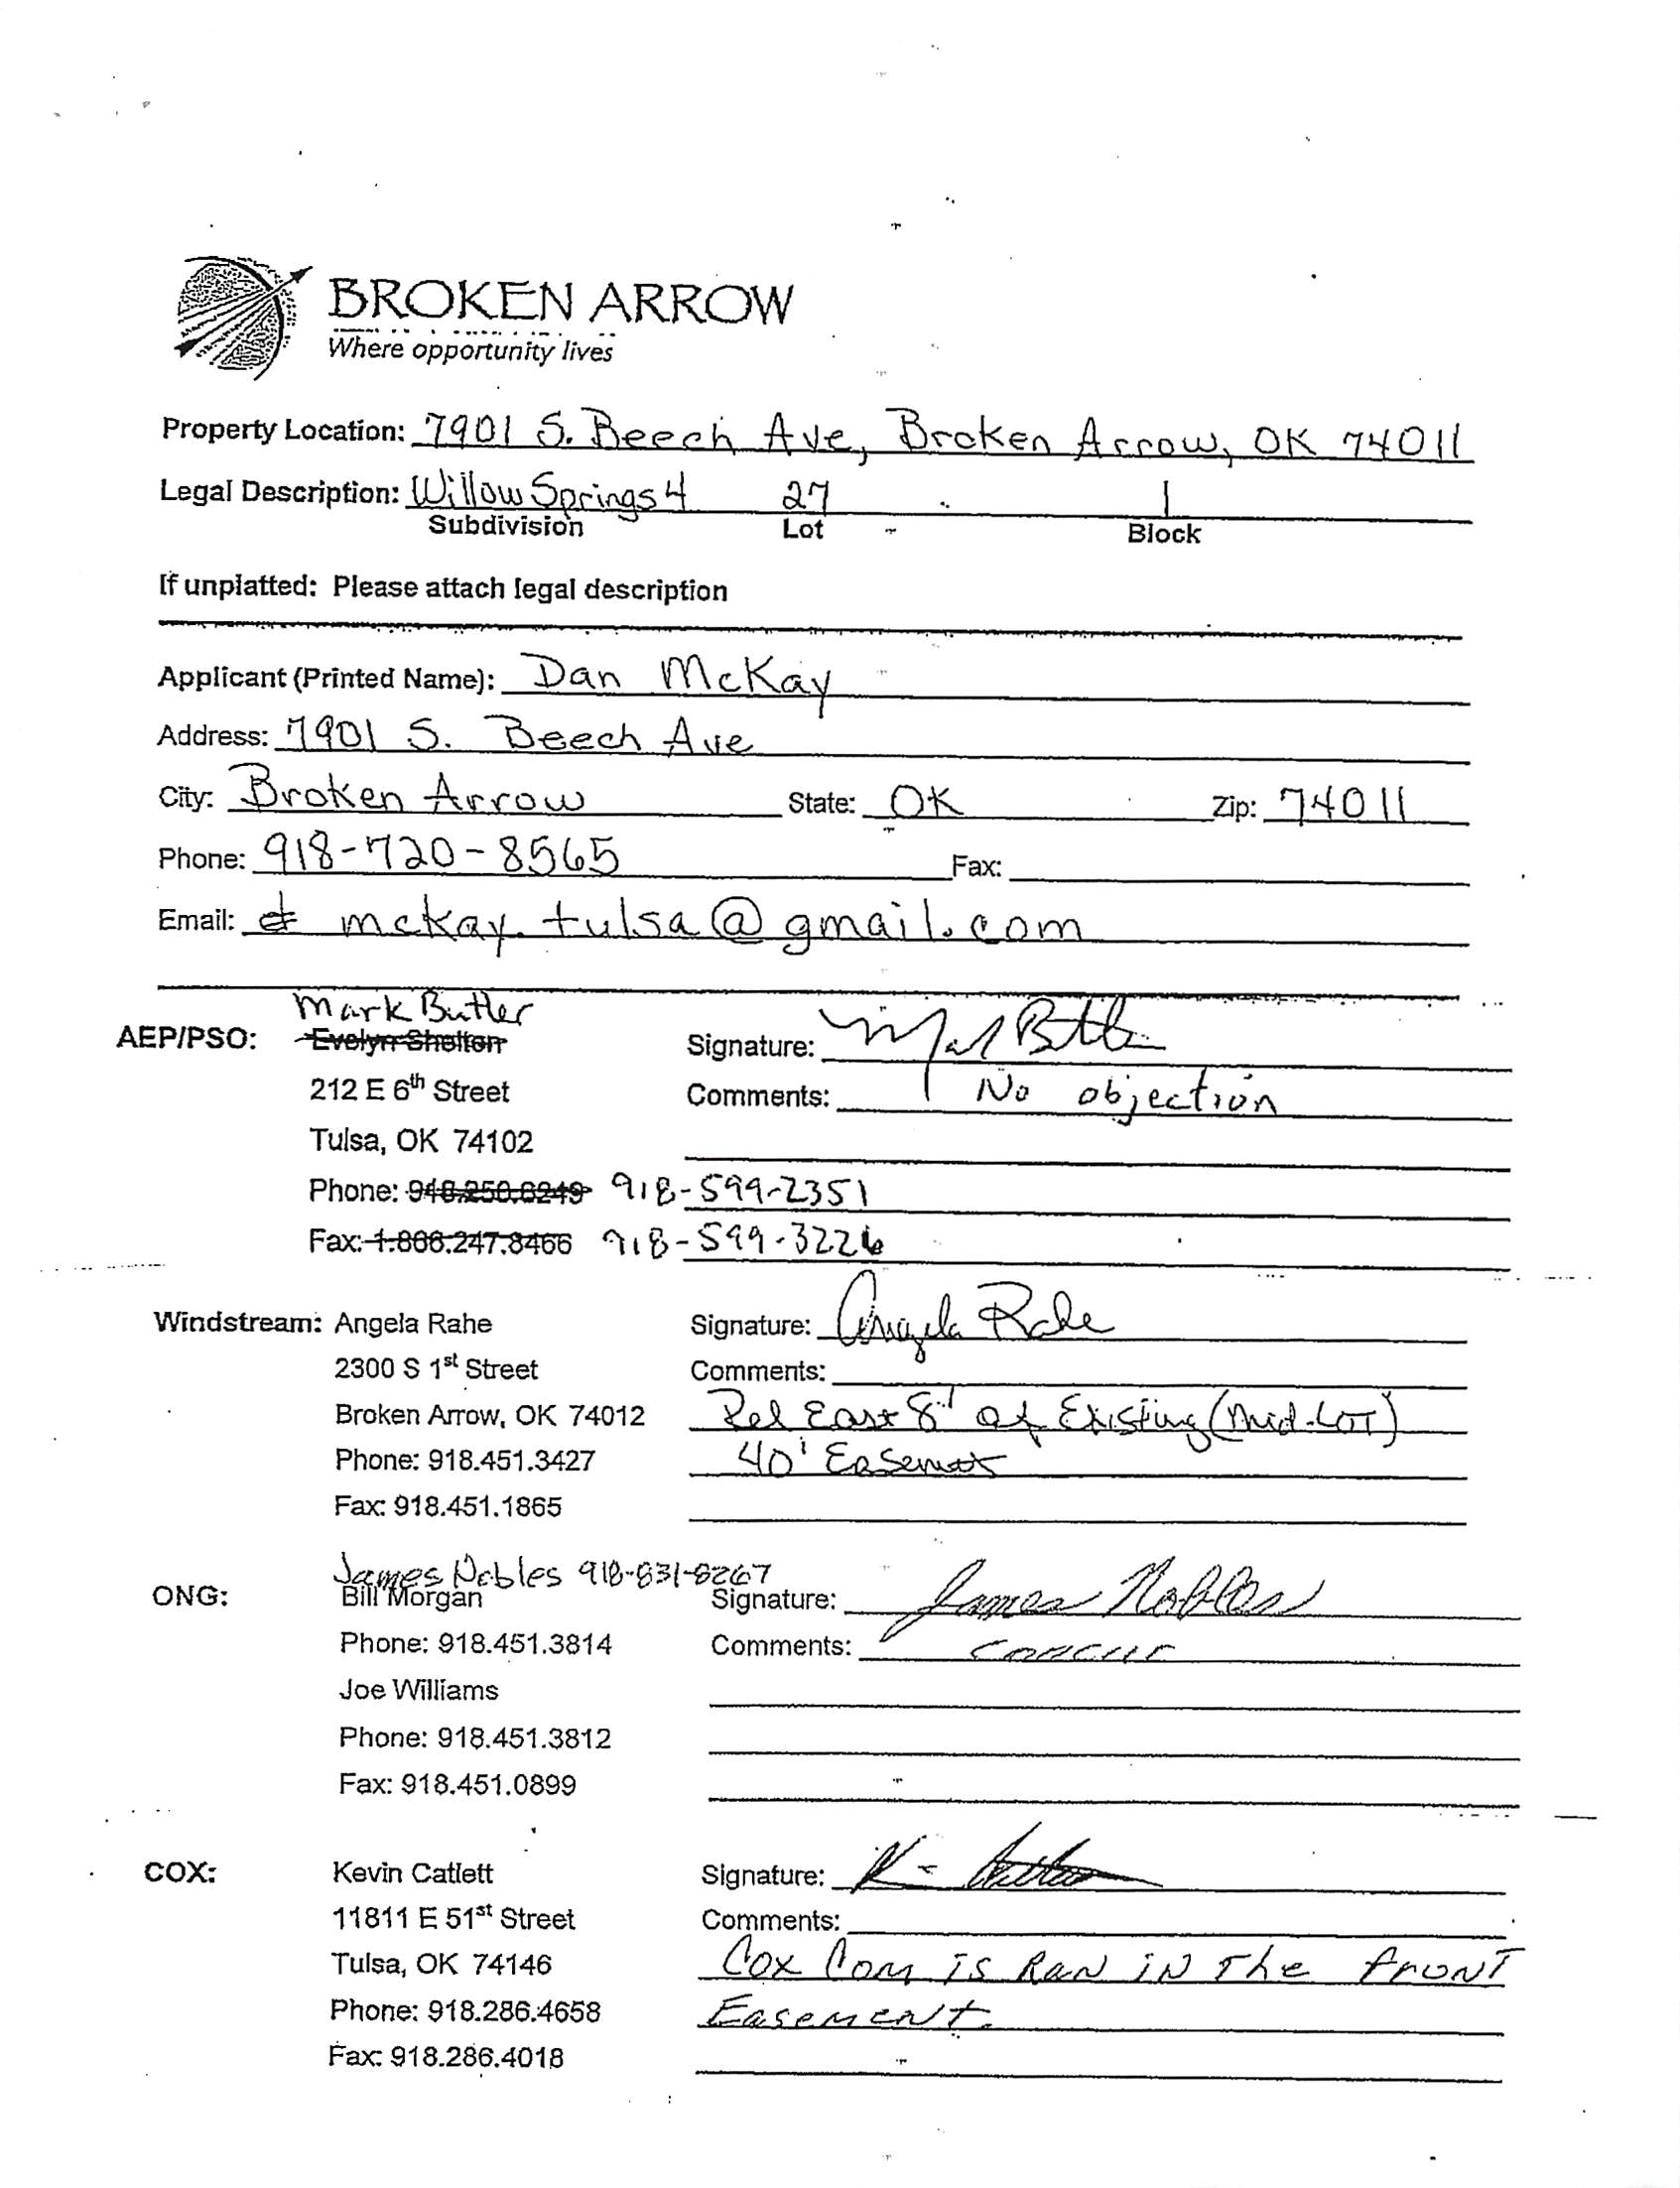 BROKEN ARROW
Where opportunity lives
Property Location: 7901 S. Beech Ave, Broken Arrow, OK 74011
Legal Description: Willow Springs 4 27 1
Subdivision Lot Block
If unplatted: Please attach legal description
Applicant (Printed Name): Dan McKay
Address: 7901 S. Beech Ave
City: Broken Arrow State: OK Zip: 74011
Phone: 918-720-8565 Fax:
Email: mckay.tulsa@gmail.com
Mark Butler
AEP/PSO: Evelyn Shelton Signature: Mark Butler
212 E 6th Street Comments: No objection
Tulsa, OK 74102
Phone: 918.250.6249 918-599-2351
Fax: 1.866.247.8466 918-599-3226
Windstream: Angela Rahe Signature: Angela Rahe
2300 S 1st Street Comments:
Broken Arrow, OK 74012 Rel East 8' of Existing (Mid-Lot)
Phone: 918.451.3427 40' Easement
Fax: 918.451.1865
James Nobles 918-831-8267
ONG: Bill Morgan Signature: James Nobles
Phone: 918.451.3814 Comments: concur
Joe Williams
Phone: 918.451.3812
Fax: 918.451.0899
COX: Kevin Catlett Signature:
11811 E 51st Street Comments:
Tulsa, OK 74146 Cox Com is Ran in The front
Phone: 918.286.4658 Easement.
Fax: 918.286.4018